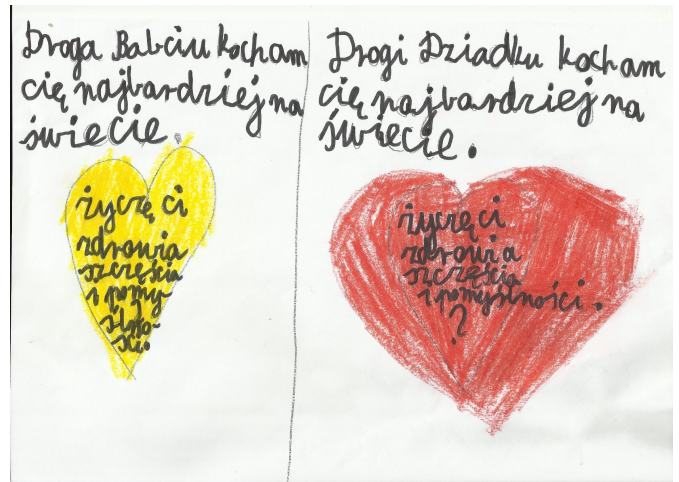 Droga Babciu kocham
cię najbardziej na
świecie.
życzę ci
zdrowia
szczęścia
i pomy-
ślno-
ści.
Drogi Dziadku kocham
cię najbardziej na
świecie.
życzę ci
zdrowia
szczęścia
i pomyślności.
?